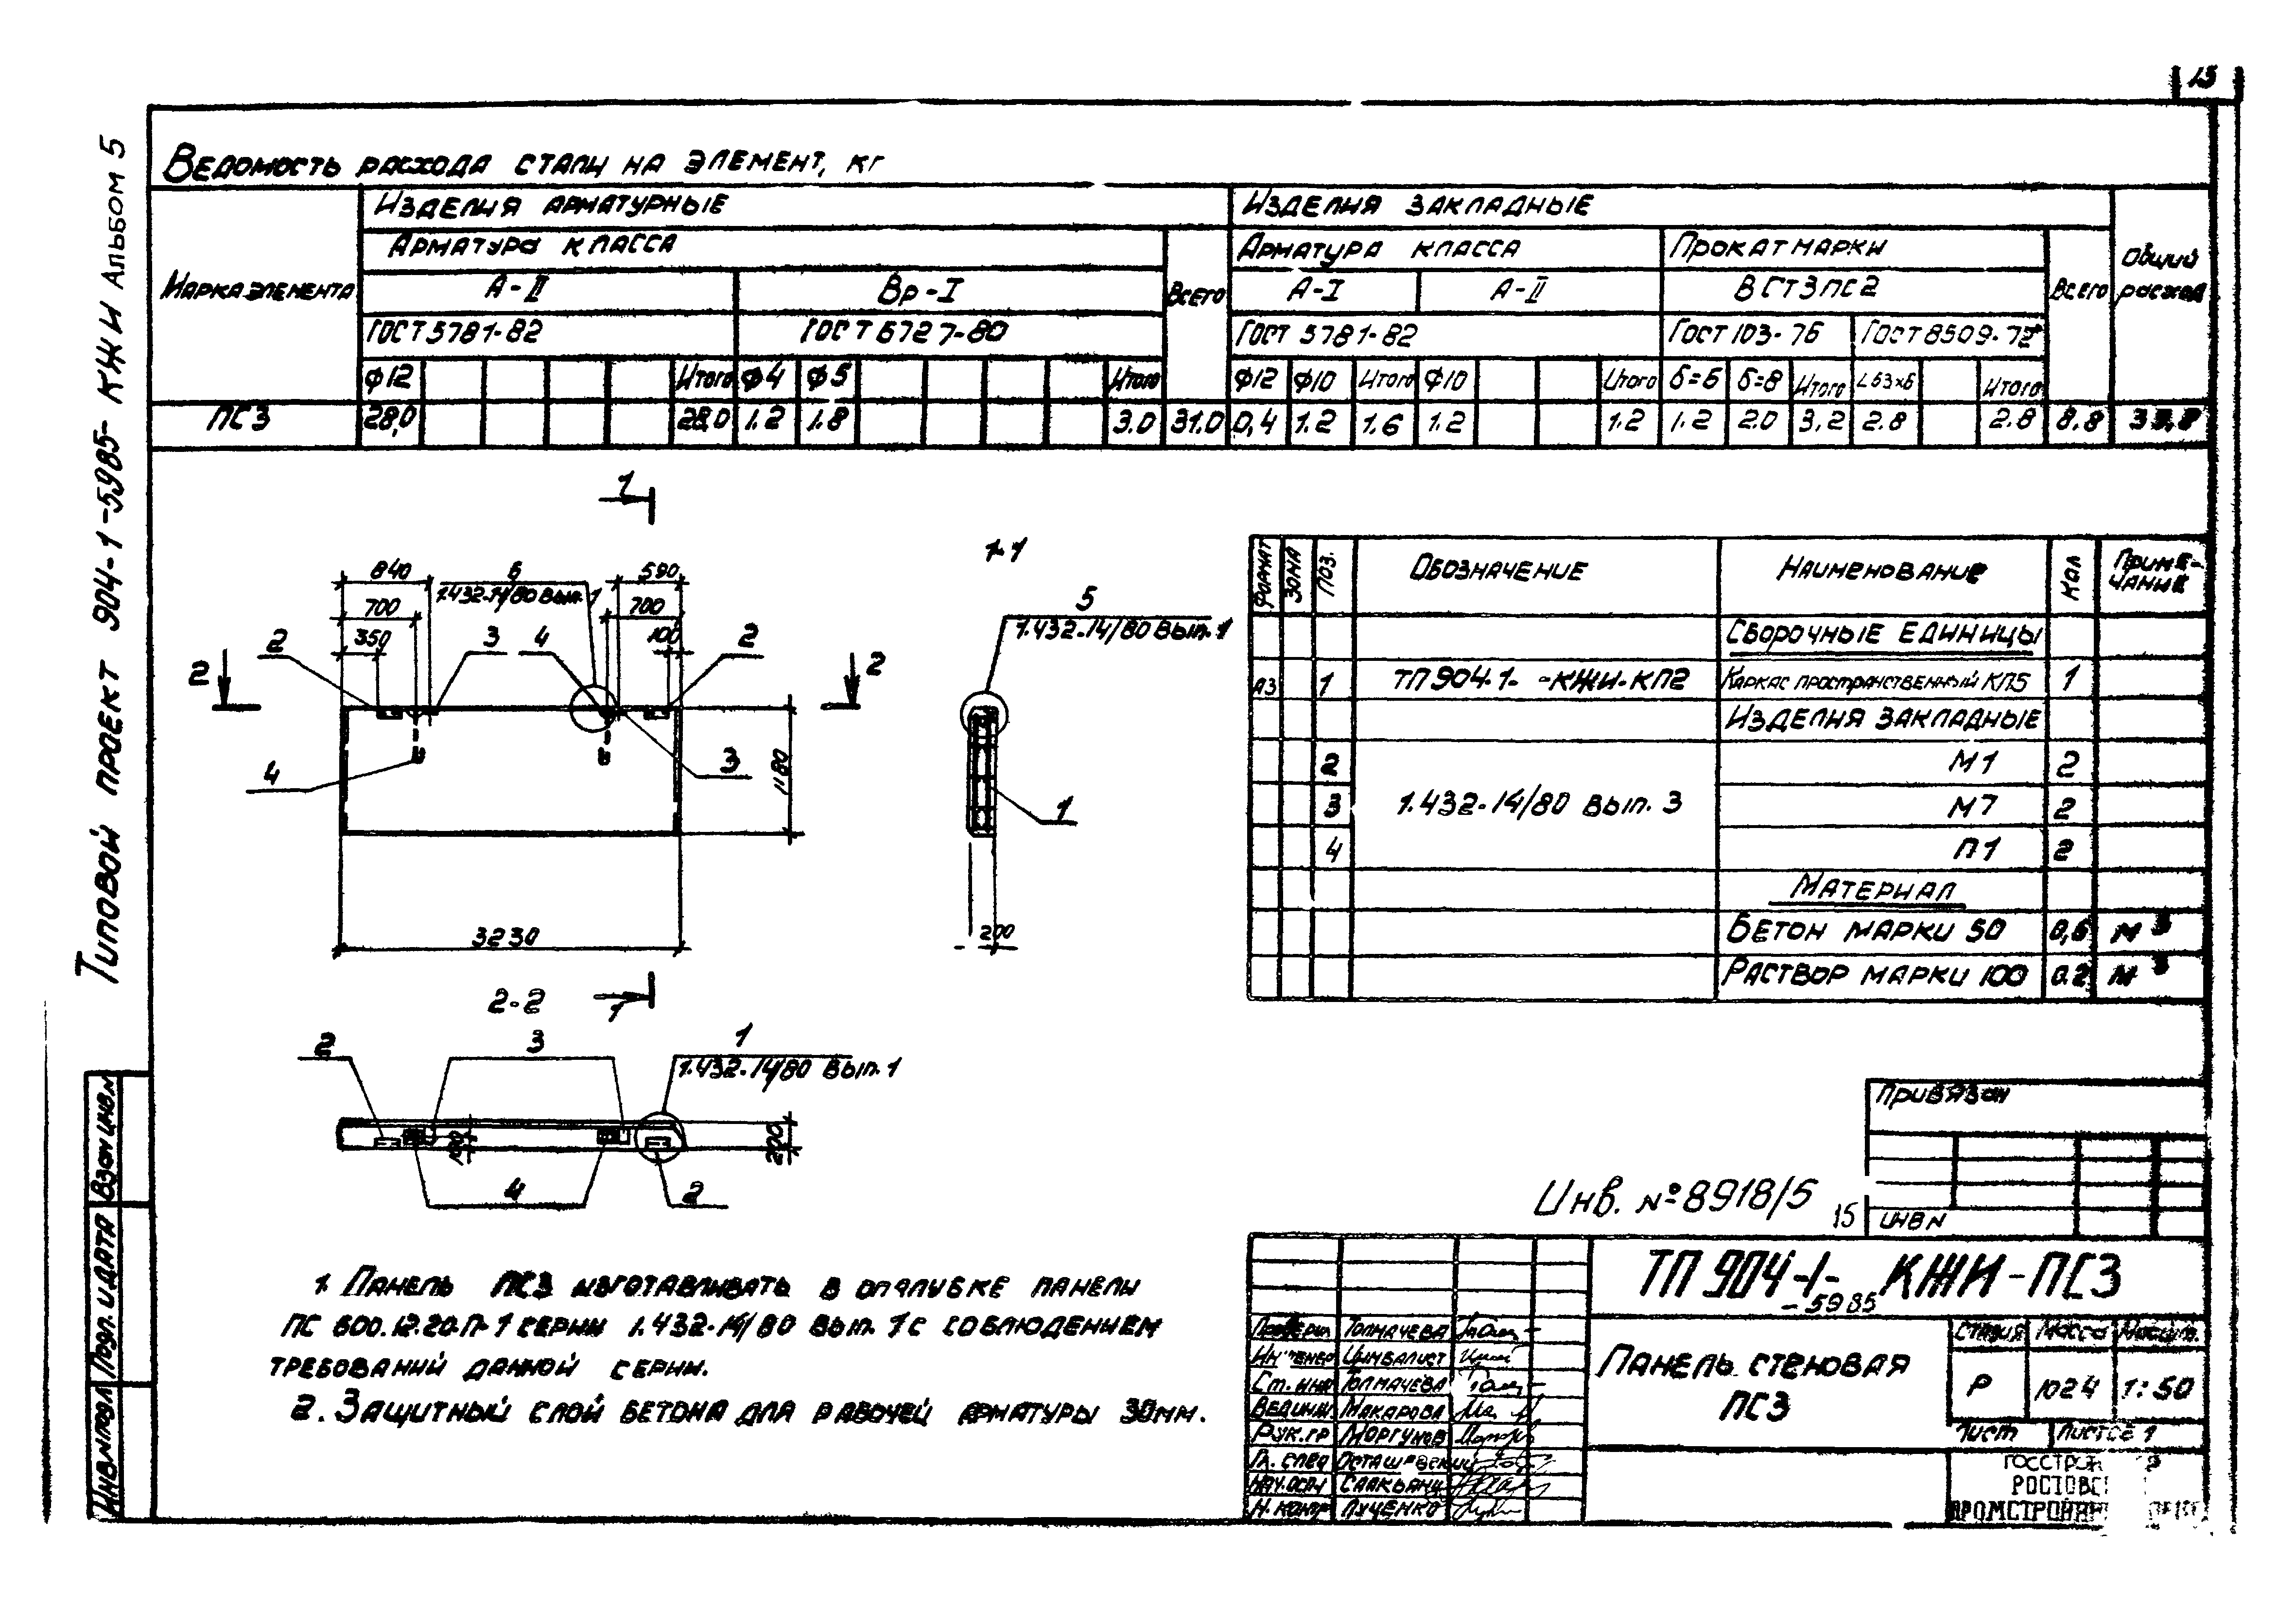 15
Типовой проект 904-1-5985-КЖИ Альбом 5
Ведомость расхода стали на элемент, кг
Марка элемента
Изделия арматурные
Изделия закладные
Общий расход
Арматура класса
Всего
Арматура класса
Прокат марки
Всего
А-II
Вр-I
А-I
А-II
ВСт3пс2
ГОСТ 5781-82
ГОСТ 6727-80
ГОСТ 5781-82
ГОСТ 103-76
ГОСТ 8509-72*
ф12 Итого ф4 ф5 Итого ф12 ф10 Итого ф10 Итого δ=6 δ=8 Итого L63х6 Итого
ПС3 28,0 28,0 1.2 1.8 3.0 31.0 0,4 1.2 1.6 1.2 1.2 1.2 2.0 3,2 2.8 2.8 8.8
1
840
6
1.432-14/80 вып. 1
590
700
700
350
100
2
3
4
2
2
2
4
3
1180
3230
1
1-1
5
1.432-14/80 вып. 1
1
200
2-2
2
3
1
1.432-14/80 вып. 1
100
200
4
2
Формат Зона Поз. Обозначение Наименование Кол Примечание
Сборочные единицы
А3 1 ТП 904-1- -КЖИ-КП2 Каркас пространственный КП5 1
Изделия закладные
2 М1 2
3 1.432-14/80 вып. 3 М7 2
4 П1 2
Материал
Бетон марки 50 0,6 м3
Раствор марки 100 0.2 м3
1. Панель ПС3 изготавливать в опалубке панели
ПС 600.12.20.П-1 серии 1.432-14/80 вып. 1 с соблюдением
требований данной серии.
2. Защитный слой бетона для рабочей арматуры 30мм.
Взам инв.№
Подп. и дата
Инв.№подл
Привязан
Инв №
Инв. №8918/5
15
ТП 904-1- КЖИ-ПС3
-5985
Провери Толмачева
Инженер Цимбалист
Ст. инж Толмачева
Вед инж Макарова
Рук. гр Моргунов
Гл. спец
Нач.осп Саакьянц
Н. контр Луценко
Панель стеновая
ПС3
Стадия Масса Масшт.
Р 1024 1:50
Лист Листов 1